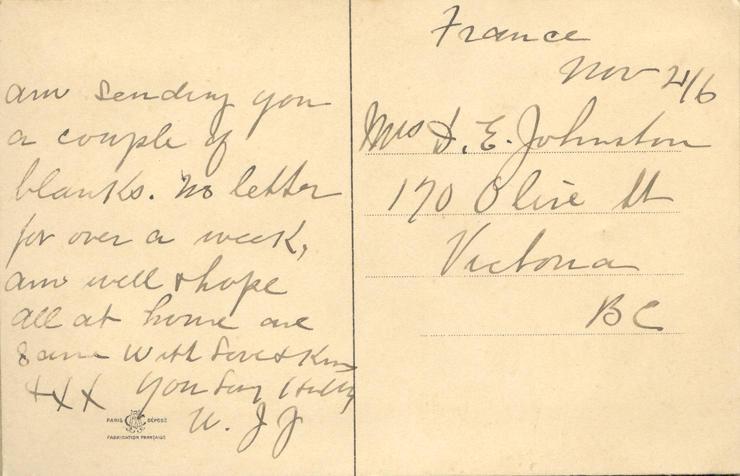 am sending you
a couple of
blanks. No letter
for over a week,
am well & hope
all at home are
same With Love &
XXX You
W. J J
PARIS DÉPOSÉ
FABRICATION FRANÇAISE
France
Nov 21/6
Mrs D. E. Johnston
170 Olive St
Victoria
BC